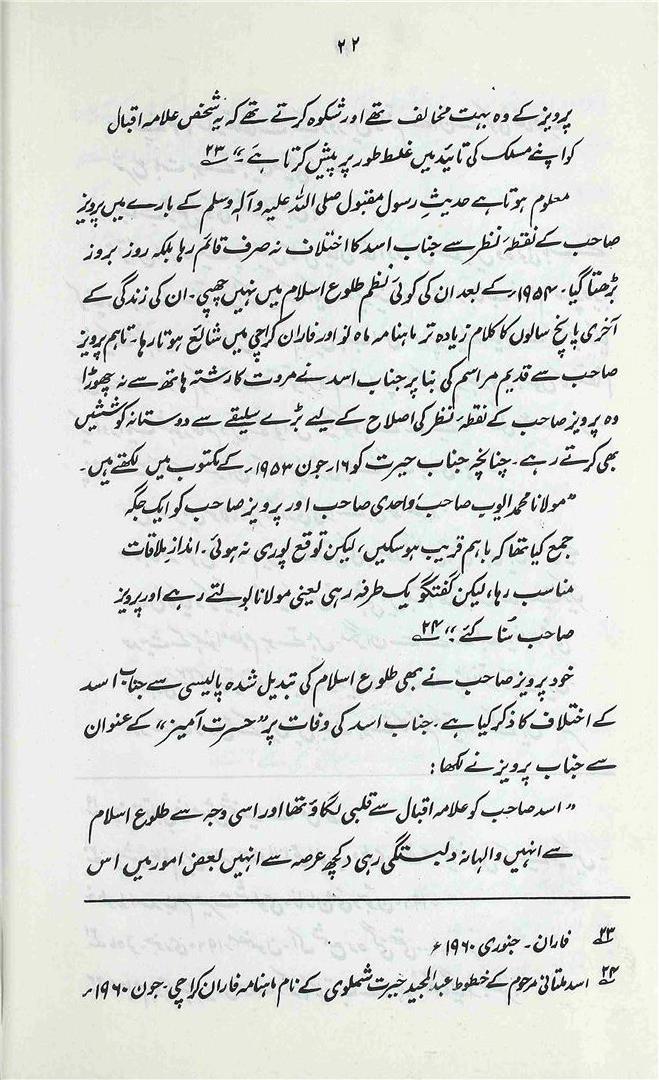 ۲۲
پرویز کے وہ بہت مخالف تھے اور شکوہ کرتے تھے کہ یہ شخص علامہ اقبال
کو اپنے مسلک کی تائید میں غلط طور پر پیش کرتا ہے۔" ۲۳؎
معلوم ہوتا ہے حدیثِ رسول مقبول صلی اللہ علیہ و آلہ وسلم کے بارے میں پرویز
صاحب کے نقطۂ نظر سے جناب اسد کا اختلاف نہ صرف قائم رہا بلکہ روز بروز
بڑھتا گیا۔ ۱۹۵۴ء کے بعد ان کی کوئی نظم طلوع اسلام میں نہیں چھپی۔ ان کی زندگی کے
آخری پانچ سالوں کا کلام زیادہ تر ماہنامہ ماہ نو اور فاران کراچی میں شائع ہوتا رہا۔ تاہم پرویز
صاحب سے قدیم مراسم کی بنا پر جناب اسد نے مروت کا رشتہ ہاتھ سے نہ چھوڑا
وہ پرویز صاحب کے نقطۂ نظر کی اصلاح کے لیے بڑے سلیقے سے دوستانہ کوششیں
بھی کرتے رہے۔ چنانچہ جناب حیرت کو ۱۶ر جون ۱۹۵۳ء کے مکتوب میں لکھتے ہیں۔
"مولانا محمد ایوب صاحب، واحدی صاحب اور پرویز صاحب کو ایک جگہ
جمع کیا تھا کہ باہم قریب ہو سکیں، لیکن توقع پوری نہ ہوئی۔ اندازِ ملاقات
مناسب رہا، لیکن گفتگو یک طرفہ رہی یعنی مولانا بولتے رہے اور پرویز
صاحب سُنا کئے۔" ۲۴؎
خود پرویز صاحب نے بھی طلوع اسلام کی تبدیل شدہ پالیسی سے جناب اسد
کے اختلاف کا ذکر کیا ہے۔ جناب اسد کی وفات پر "حسرت آمیز" کے عنوان
سے جناب پرویز نے لکھا:
"اسد صاحب کو علامہ اقبال سے قلبی لگاؤ تھا اور اسی وجہ سے طلوع اسلام
سے انہیں والہانہ دلبستگی رہی دکچھ عرصہ سے انہیں بعض امور میں اس
۲۳؎ فاران۔ جنوری ۱۹۶۰ء
۲۴؎ اسد ملتانی مرحوم کے خطوط عبدالمجید حیرت شملوی کے نام ماہنامہ فاران کراچی۔ جون ۱۹۶۰ء